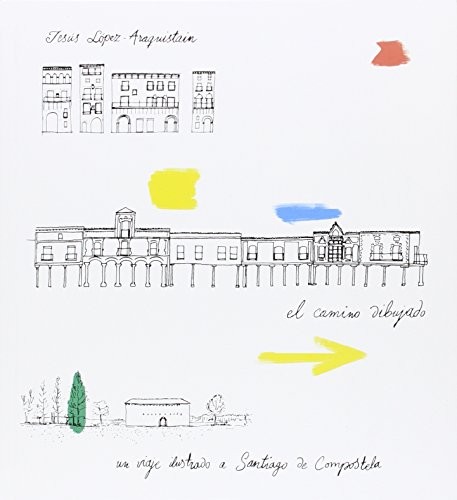 Jesús López-Araquistain
el camino dibujado
un viaje ilustrado a Santiago de Compostela